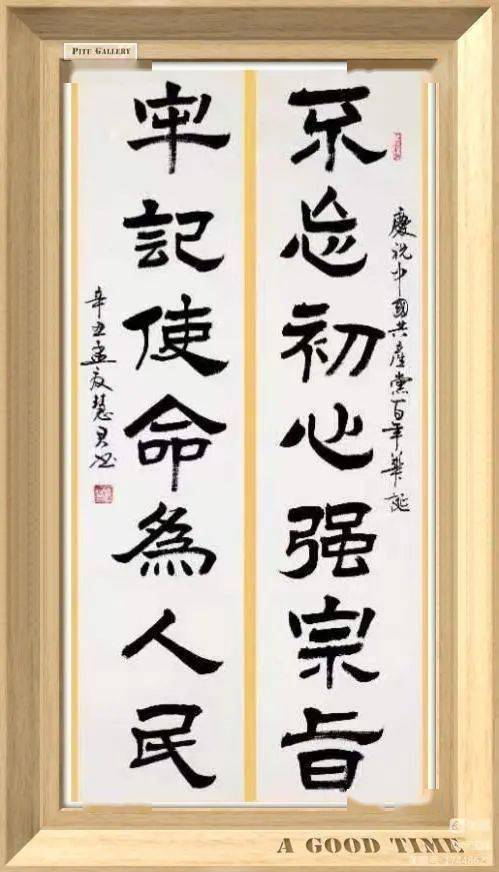 PITU GALLERY
慶祝中國共產黨百年華誕
不忘初心强宗旨
牢記使命為人民
辛丑孟夏慧君书
A GOOD TIME